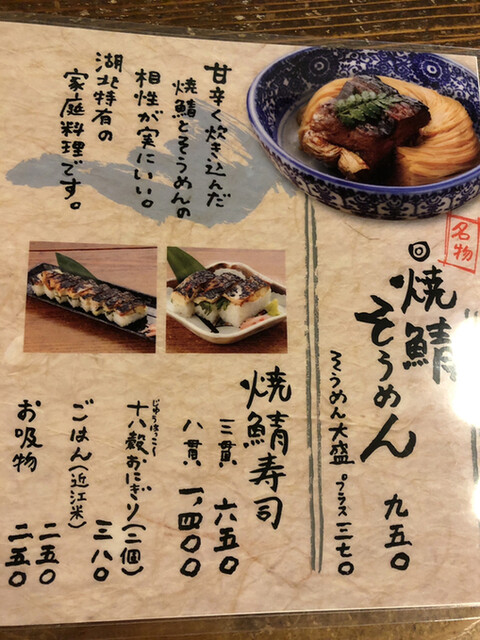 名物
焼鯖そうめん 九五〇
そうめん大盛 プラス 三七〇
甘辛く炊き込んだ
焼鯖とそうめんの
相性が実にいい。
湖北特有の
家庭料理です。
焼鯖寿司
三貫 六五〇
八貫 一、四〇〇
十八穀おにぎり(二個) 三八〇
ごはん(近江米) 二五〇
お吸物 二五〇